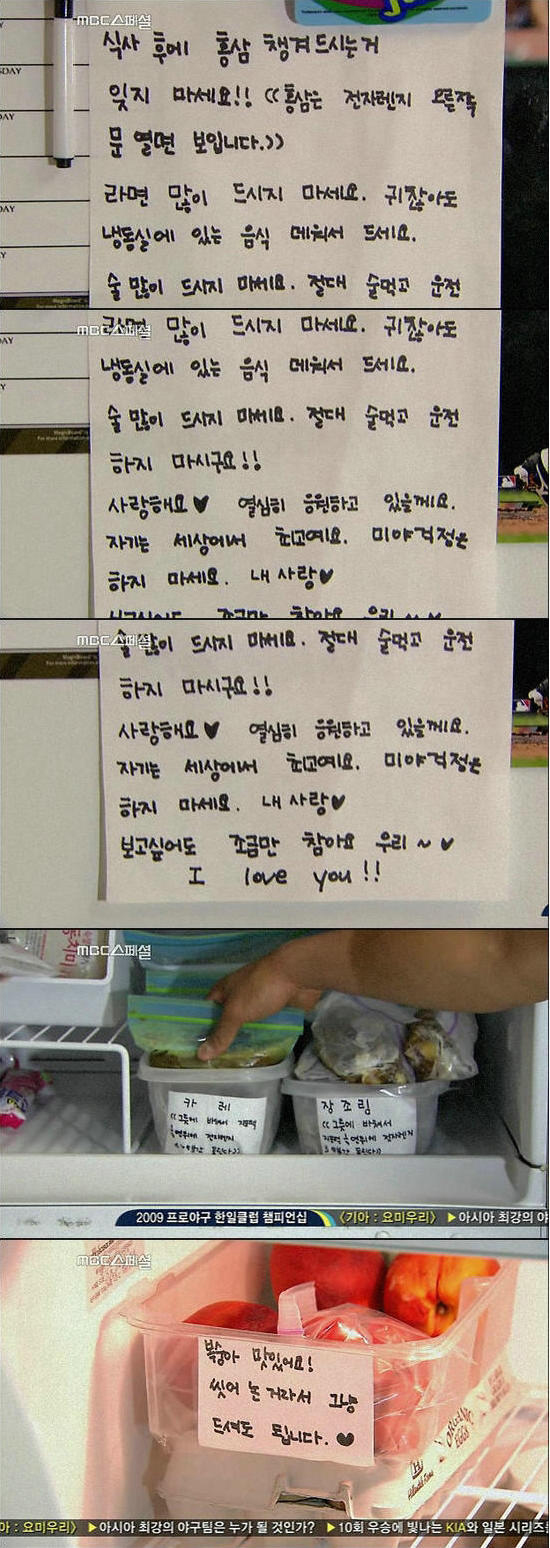 MBC스페셜
식사 후에 홍삼 챙겨드시는거
잊지 마세요!! ((홍삼은 전자렌지 오른쪽
문 열면 보입니다.))
라면 많이 드시지 마세요. 귀찮아도
냉동실에 있는 음식 데워서 드세요.
술 많이 드시지 마세요. 절대 술먹고 운전
MBC스페셜
라면 많이 드시지 마세요. 귀찮아도
냉동실에 있는 음식 데워서 드세요.
술 많이 드시지 마세요. 절대 술먹고 운전
하지 마시구요!!
사랑해요♥ 열심히 응원하고 있을께요.
자기는 세상에서 최고예요. 미야걱정은
하지 마세요. 내 사랑♥
보고싶어도 조금만 참아요 우리~♥
MBC스페셜
술 많이 드시지 마세요. 절대 술먹고 운전
하지 마시구요!!
사랑해요♥ 열심히 응원하고 있을께요.
자기는 세상에서 최고예요. 미야걱정은
하지 마세요. 내 사랑♥
보고싶어도 조금만 참아요 우리~♥
I love you!!
MBC스페셜
카레
((그릇에 바꿔서
전자렌지
장조림
((그릇에 바꿔서
전자렌지
2009 프로야구 한일클럽 챔피언십 〈기아 : 요미우리〉 ▶아시아 최강의 야
MBC스페셜
복숭아 맛있어요!
씻어 논 거라서 그냥
드셔도 됩니다.♥
ORGANIC
EGGS
아 : 요미우리〉 ▶아시아 최강의 야구팀은 누가 될 것인가? ▶10회 우승에 빛나는 KIA와 일본 시리즈